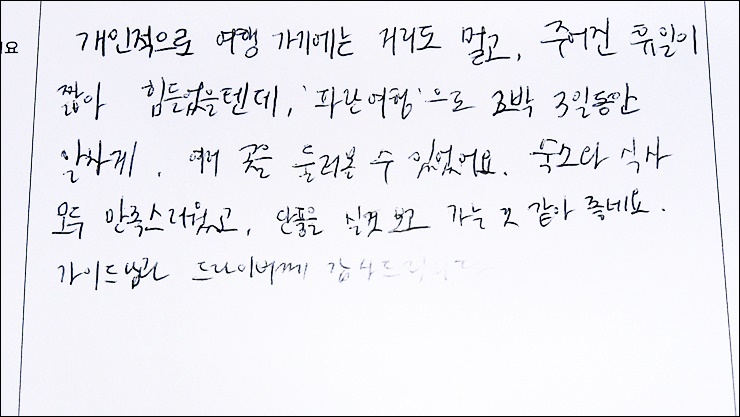 개인적으로 여행 가기에는 거리도 멀고, 주어진 휴일이
짧아 힘들었을텐데, '파란여행'으로 2박 3일동안
알차게, 여러 곳을 둘러볼 수 있었어요. 숙소와 식사
모두 만족스러웠고, 단풍을 실컷 보고 가는 것 같아 좋네요.
가이드님과 드라이버께 감사드립니다